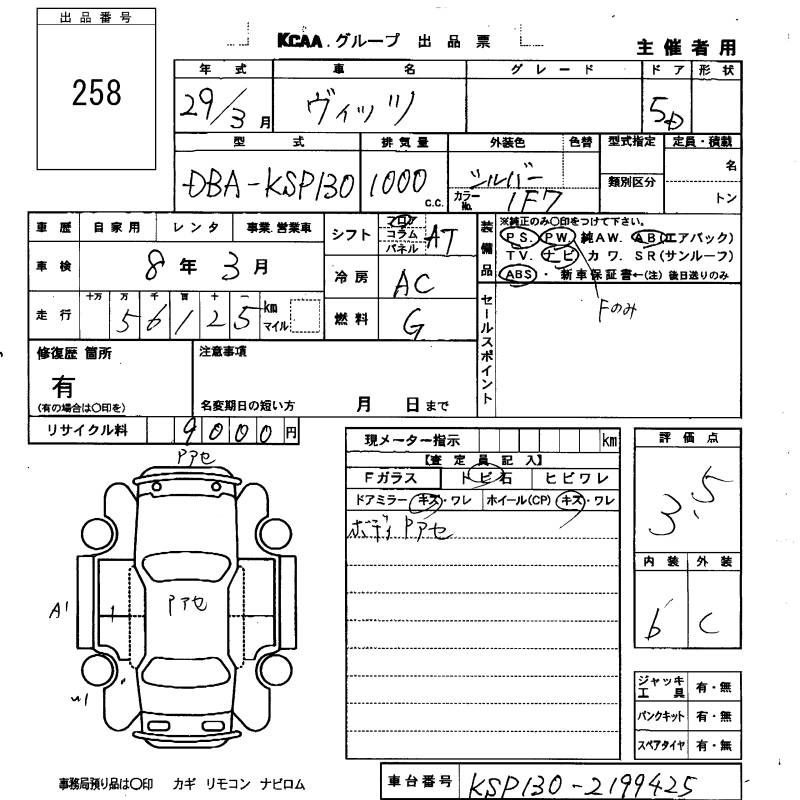 出品番号
258
KCAA.グループ 出品票
主催者用
年式 車名 グレード ドア 形状
29/3月 ヴィッツ 5D
型式 排気量 外装色 色替 型式指定 定員・積載
DBA-KSP130 1000 c.c. シルバー カラーNo. 1F7 類別区分 名 トン
車歴 自家用 レンタ 事業.営業車
車検 8年3月
走行 十万 万 千 百 十 一
56125 km マイル
シフト フロア コラム パネル AT
冷房 AC
燃料 G
装備品
※純正のみ〇印をつけて下さい。
PS. PW. 純AW. AB(エアバック)
TV. ナビ カワ. SR(サンルーフ)
ABS・新車保証書←(注)後日送りのみ
Fのみ
セールスポイント
修復歴 箇所
有
(有の場合は〇印を)
注意事項
名変期日の短い方 月 日まで
リサイクル料 9000円
現メーター指示 km
【査定員記入】
Fガラス トビ石 ヒビワレ
ドアミラー キズ・ワレ ホイール(CP) キズ・ワレ
ボディPアセ
評価点
3.5
内装 外装
b C
Pアセ
Pアセ
A1
1
W1
ジャッキ工具 有・無
パンクキット 有・無
スペアタイヤ 有・無
事務局預り品は〇印 カギ リモコン ナビロム
車台番号 KSP130-2199425